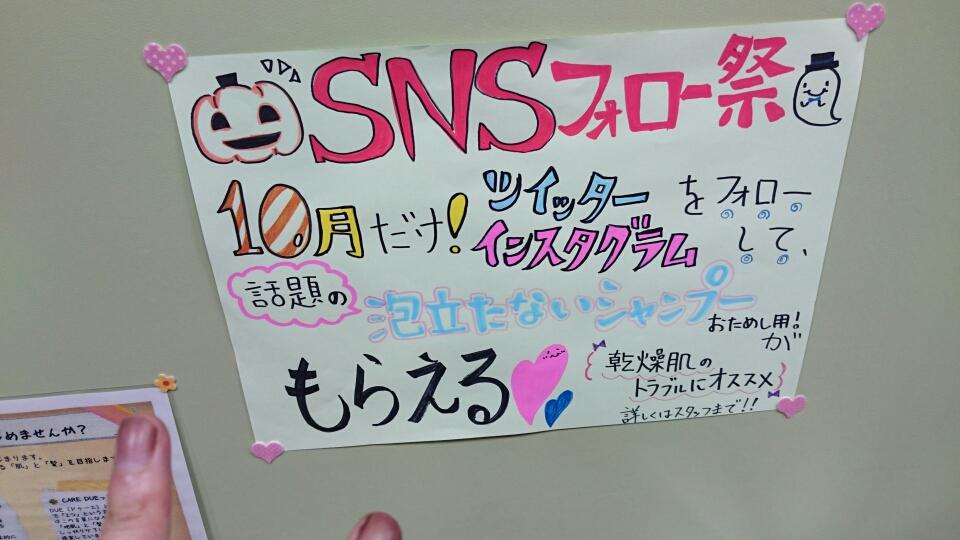 SNSフォロー祭
10月だけ!ツイッター
インスタグラム
をフォロー
して、
話題の
泡立たないシャンプー
おためし用!
が
もらえる
乾燥肌の
トラブルにオススメ
詳しくはスタッフまで!!
めませんか?
ります。
る「肌」と「髪」を目指しま
CARE DUE
DUE(ドゥーエ)